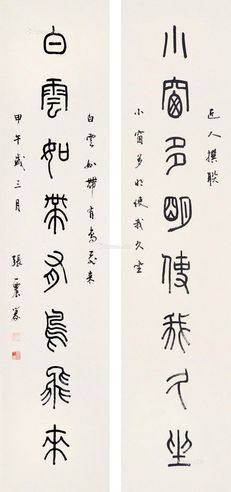 近人撰联
小窗多明使我久坐
小窗多明使我久坐
白雲如帶有鳥飛來
白雲如帶有鳥飛来
甲午歲三月
張一麐篆